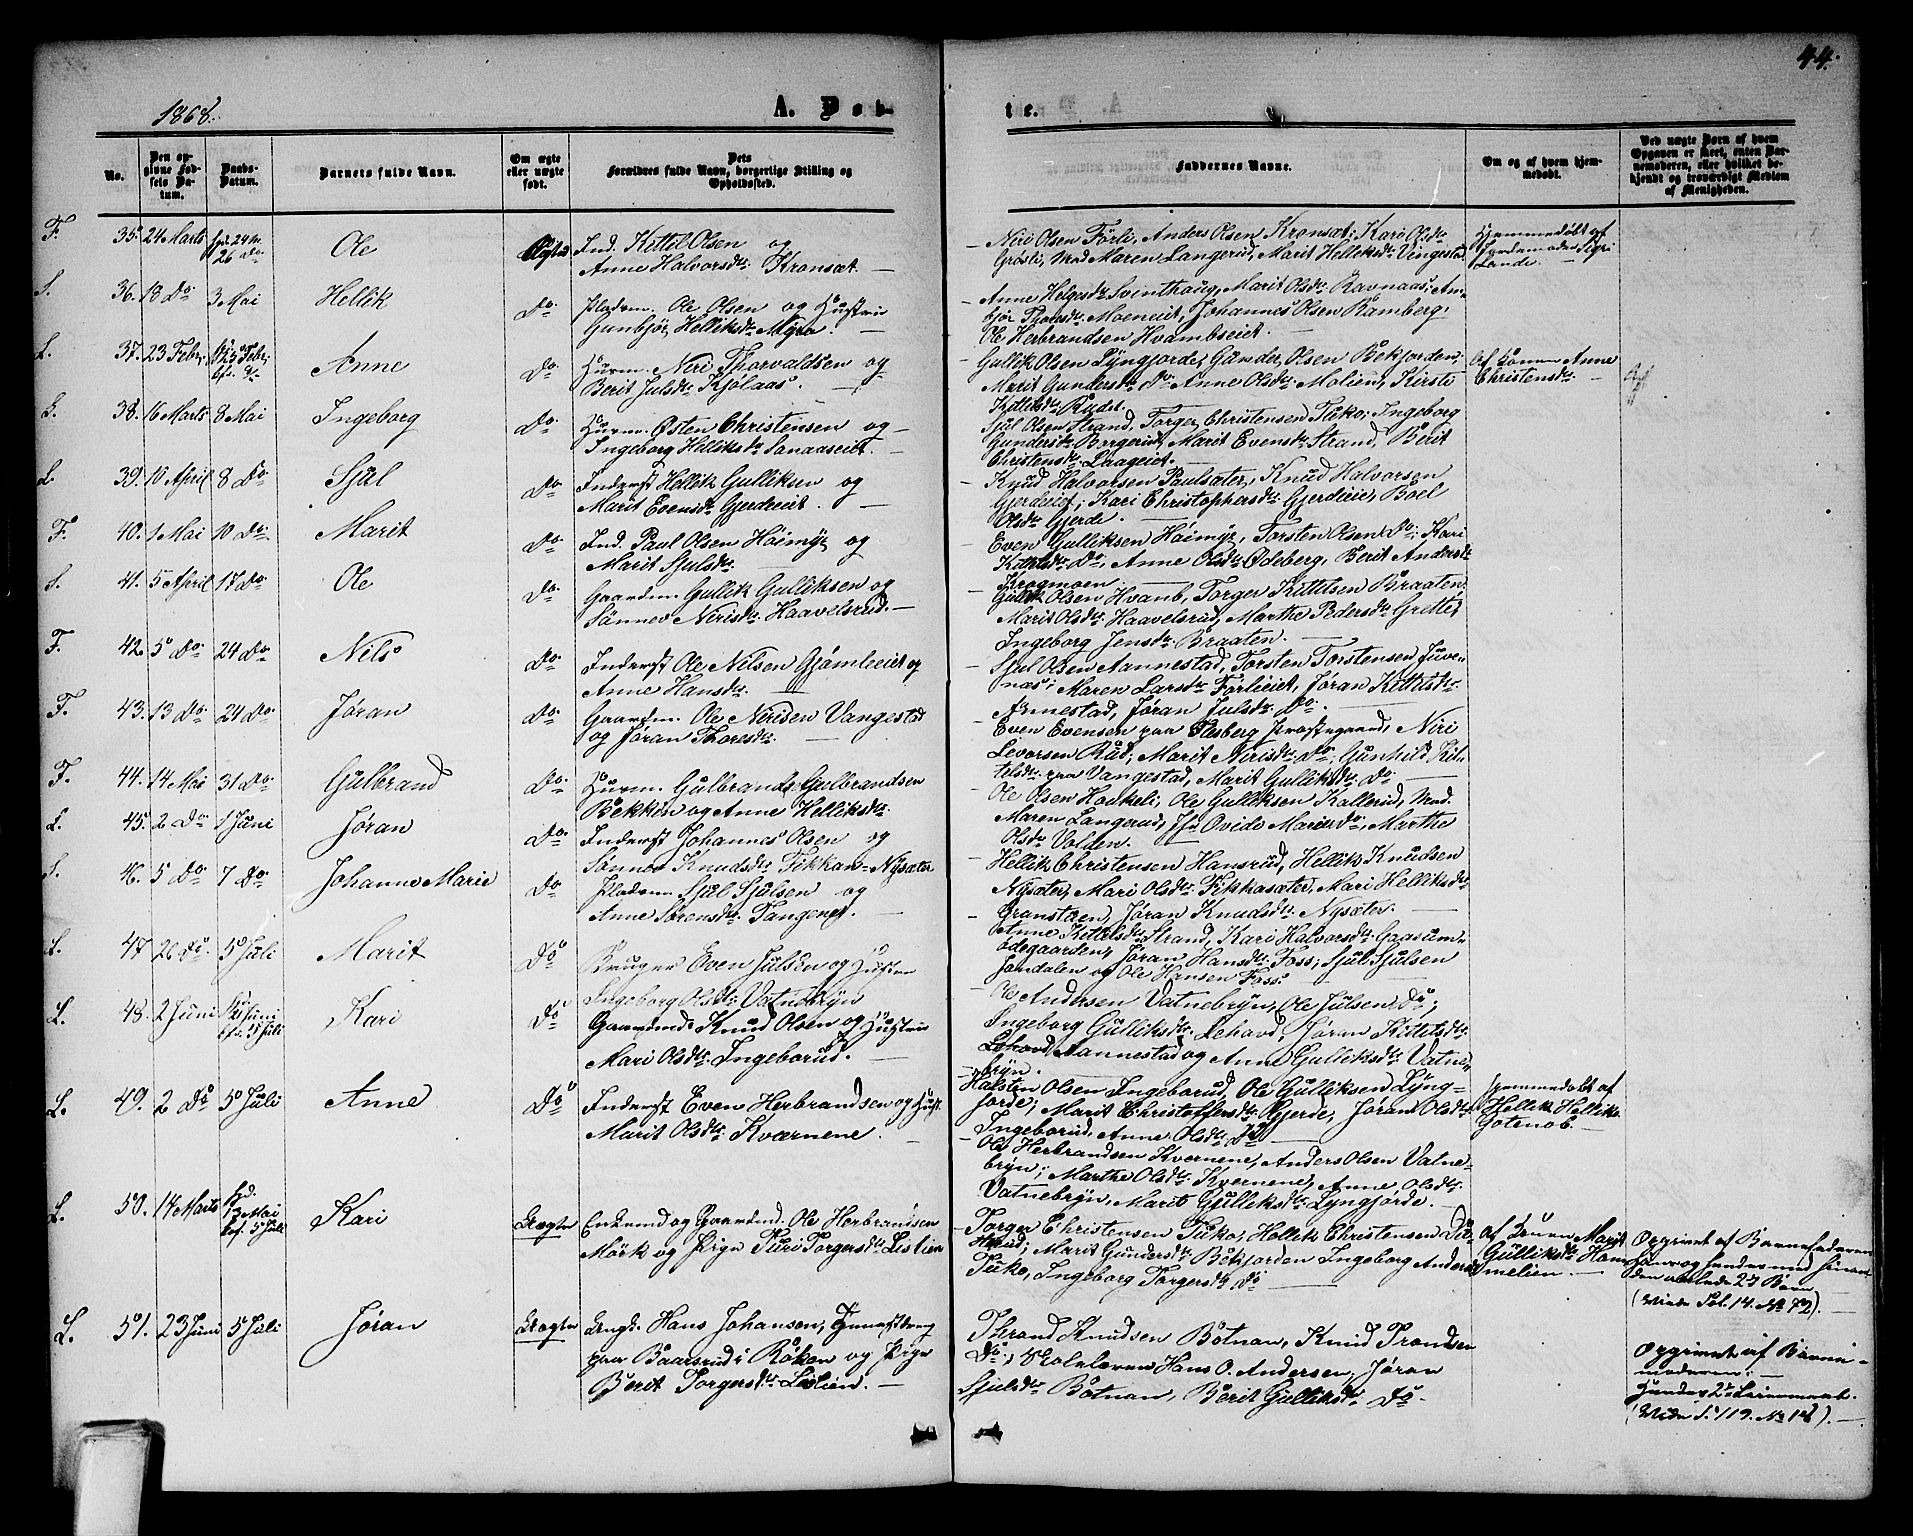 44.
1868.
A. Døb-
te.
No.
Den op-
givne Fød-
sels Da-
tum.
Daabs-
Datum.
Barnets fulde Navn.
Om ægte
eller uægte
født.
Dets
Forældres fulde Navn, borgerlige Stilling og
Opholdssted.
Faddernes Navne.
Om og af hvem hjem-
medøbt.
Ved uægte Barn af hvem
Opgaven er skeet, enten Bar-
nemoderen, eller hvilket be-
kjendt og troværdigt Medlem
af Menigheden.
F. 35. 24 Marts 26 Do. Ole Ægte Ind. Kittel Olsen og
Anne Halvorsdtr. Kronsæt. —
Niri Olsen Førli, Anders Olsen Kronsæt; Kari Olsdtr.
Grøsli, Mad. Maren Langerud, Marit Helleksdtr. Vingestad
Hjemmedøbt af
Lande. —
S. 36. 18 Do 3 Mai Hellik Do. Pladsm. Ole Olsen og Hustru
Gunbjør Helliksdtr. Myra. —
Anne Helgesdtr Svinthaug, Marit Olsdtr. Ravnaas; An-
bjør Thoresdtr. Moeneiet, Johannes Olsen Ramberg,
Ole Herbrandsen Hvambseiet. —
L. 37. 23 Febr. 23 Febr. Anne Do. Huusm. Niri Thorvaldsen og
Berit Julsdtr. Kjølaas. —
Gullik Olsen Lyngjorde, Gunder Olsen Bekjorden;
Marit Gundersdtr. Do. Anne Olsdtr. Molien, Kirsti
Kittilsdtr. Rudet.
Af Konen Anne
Christensdtr. —
S. 38. 16 Marts 8 Mai Ingeborg Do. Huusm. Østen Christensen og
Ingeborg Helliksdtr. Sanaaseiet. —
Sjul Olsen Strand, Torger Christensen Tuko; Ingeborg
Gundersdtr. Bergerud, Marit Evensdtr. Strand, Berit
Christensdtr. Laageiet. —
L. 39. 10 April 8 Do Sjul Do. Inderst Hellek Gulliksen og
Marit Evensdtr. Gjerdeeiet. —
Knud Halvorsen Paulsæter, Knud Halvorsen
Gjerdeiet; Kari Christophersdtr. Gjerdeiet, Boel
Olsdtr. Gjerde. —
F. 40. 1 Mai 10 Do. Marit Do. Ind. Paul Olsen Høimyr og
Marit Sjulsdtr. —
Even Gulliksen Høimyr, Torsten Olsen Do; Kari
Kittilsdtr. Do, Anne Olsdtr. Ødeberg, Berit Andersdtr
Krogmoen. —
S. 41. 5 April 17 Do Ole Do. Gaardm. Gullik Gulliksen og
Sønnev Nirisdtr. Haavelsrud. —
Gullik Olsen Hvamb, Torger Kittilsen Braaten,
Marit Olsdtr. Haavelsrud, Marthe Pedersdtr. Grette,
Ingeborg Jensdtr. Braaten. —
F. 42. 5 Do. 24 Do. Nils Do. Inderst Ole Nilsen Gjømleeiet og
Anne Hansdtr. —
Sjul Olsen Aannestad, Torsten Torstensen Juve-
næs; Maren Larsdtr. Førlieiet, Jøran Kittilsdtr.
Annestad, Jøran Julsdtr. Do. —
F. 43. 13 Do. 24 Do. Jøran Do. Gaardm. Ole Nirisen Vangestad
og Jøran Thoresdtr. —
Even Evensen paa Flesberg Præstegaard, Niri
Levorsen Rud, Marit Nirisdtr. Do, Gunhild Kit-
telsdtr. paa Vangestad, Marit Gulliksdtr. Do
F. 44. 14 Mai 31 Do. Gulbrand Do. Huusm. Gulbrand Gulbrandsen
Bekken og Anne Helliksdtr.
Ole Olsen Hoskeli, Ole Gulliksen Kallerud, Mad.
Maren Langerud, Ovide Marie Do., Marthe
Olsdtr. Volden.
L. 45. 2 Do 1 Juni Jøran Do. Inderst Johannes Olsen og
Sønnev Knudsdtr. Fikkan - Nysæter
Hellik Christensen Hansrud, Hellik Knudsen
Nysæter, Mari Olsdtr. Fikkasæter, Mari Helliksdtr.
Granstuen, Jøran Knudsdtr. Nysæter. —
S. 46. 5 Do 7 Do Johanne Marie Do. Pladsm. Sjul Sjulsen og
Anne Sørensdtr. Tangenet. —
Anne Kittilsdtr. Strand, Kari Halvorsdtr. Gaasum-
ødegaarden, Jøran Hansdtr. Foss; Sjul Sjulsen
Jondalen og Ole Hansen Foss.
L. 47 20 Do. 5 Juli Marit Do Bruger Even Julsen og Hustru
Ingeborg Olsdtr. Vatnebryn
Ole Andersen Vatnebryn, Ole Julsen Do;
Ingeborg Gulliksdtr. Lehovd, Jøran Kittilsdtr.
Aannestad og Anne Gulliksdtr. Vatne-
bryn.
L. 48. 2 Juni 5 Juli Kari Do Gaardmd. Knud Olsen og Hustru
Mari Olsdtr. Ingeborud. —
Halsten Olsen Ingeborud, Ole Gulliksen Lyng-
jorde; Marit Christoffersdtr. Gjerde, Jøran Olsdtr.
Ingeborud, Anne Olsdtr. Do —
L. 49. 2 Do 5 Juli Anne Do Inderst Even Herbrandsen og Hust.
Marit Olsdtr. Kværnene. —
Ole Herbrandsen Kvernene, Anders Olsen Vatne-
bryn; Marthe Olsdtr. Kvernene, Anne Olsdtr.
Vatnebryn, Marit Gulliksdtr. Lyngjorde. —
Hjemmedøbt af
Hellik Hellik-
Gotenob. —
L. 50. 14 Marts 5 Juli Kari Uægte Enkemd og Gaardmd. Ole Herbrandsen
Mørk og Pige Turi Torgersdtr. Listien
Torger Christensen Tuko, Hellik Christensen
Marit Gundersdtr. Bekjorden Ingeborg Andersdtr
Tuko, Ingeborg Torgersdtr. Do
Af Konen Marit
Gulliksdtr. Hans-
melien. —
Opgivet af Barnefaderen
(Vide Fol. 14. No 72). —
L. 51. 23 Juni 5 Juli Jøran Uægte Ungk. Hans Johansen, Tjenestdreng
paa Baarsrud i Røken og Pige
Berit Torgersdtr. Listien. —
Thrond Knudsen Botnan, Knud Trondsen
Do.; Skolelærer Hans O. Andersen, Jøran
Sjulsdtr Botnan, Berit Gulliksdtr. Do. —
Opgivet af Barne-
moderen; —
Hendes 2det Leiermaal.
(Vide S. 119. No 18). —